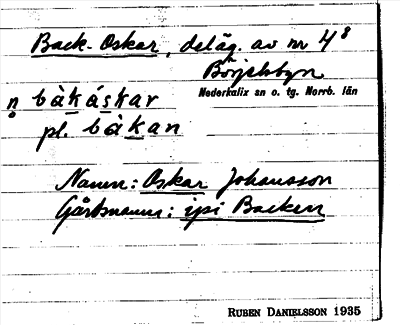 Back-Oskar, deläg. av nr 4⁸
Börjelsbyn
Nederkalix sn o. tg. Norrb. län
n bàkáskar
pl. bàkan
Namn: Oskar Johansson
Gårdsnamn: ipi Backen
RUBEN DANIELSSON 1935